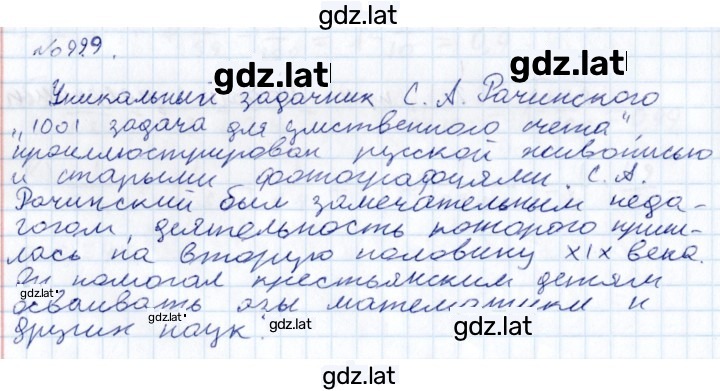 gdz.lat
№999.
gdz.lat
gdz.lat
Уникальный задачник С. А. Рачинского
„1001 задача для умственного счета"
проиллюстрирован русской живописью
и старыми фотографиями. С. А.
Рачинский был замечательным педа-
гогом, деятельность которого приш-
лась на вторую половину XIX века.
Он помогал крестьянским детям
gdz.lat
осваивать азы математики и
gdz.lat
других наук.
gdz.lat
gdz.lat